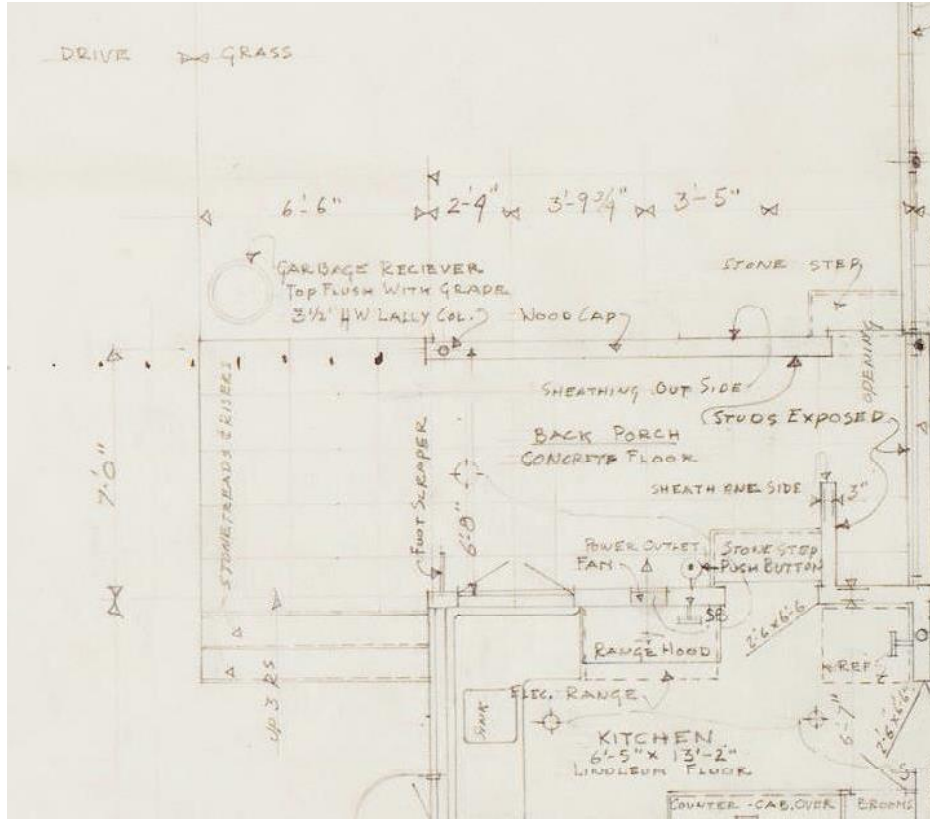 DRIVE
GRASS
6'-6"
2'-4"
3'-9 3/4"
3'-5"
GARBAGE RECIEVER
TOP FLUSH WITH GRADE
3 1/2" HW LALLY COL.
WOOD CAP
STONE STEP
OPENING
SHEATHING OUT SIDE
STUDS EXPOSED
BACK PORCH
CONCRETE FLOOR
SHEATH ONE SIDE
3"
7'-0"
STONE TREADS & RISERS
FOOT SCRAPER
6'-8"
POWER OUTLET
FAN
STONE STEP
PUSH BUTTON
2'-6 x 6'-6
RANGE HOOD
REF
UP 3 RS
ELEC. RANGE
SINK
KITCHEN
6'-5" x 13'-2"
LINOLEUM FLOOR
6'-7"
2'-6 x 6'-6
COUNTER - CAB. OVER
BROOMS